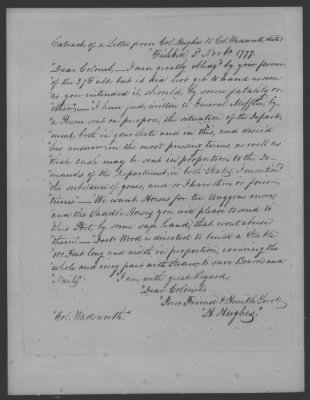 Extract of a Letter from Col. Hughes to Col. Wadsworth, dated
"Fishkill 5th Novr. 1777.
"Dear Colonel,—I am greatly obliged by your favour
of the 27th ult. but it did not get to hand as soon
as you intended it should, by some fatality or
other;—I have just written to General Mifflin, by
a Person sent on purpose, the situation of the Depart-
ment, both in your State and in this, and desired
his answer in the most pressing terms as well as
that cash may be sent in proportion to the De-
mands of the Department in both States; I mention'd
the substance of yours, and so I have three or four
times;— We want Horses for ten Waggons more,
and the Saddle Horses you will please to send to
this Post, by some safe hand, that wont abuse
them.— Wood is directed to build a Stable
100 Feet long and width in proportion, covering the
whole and every part with Straw, to save Boards and
Nails."
I am, with great Regard,
"Dear Colonel
Your Friend & Humble Servt.
"Col. Wadsworth."
"H. Hughes."